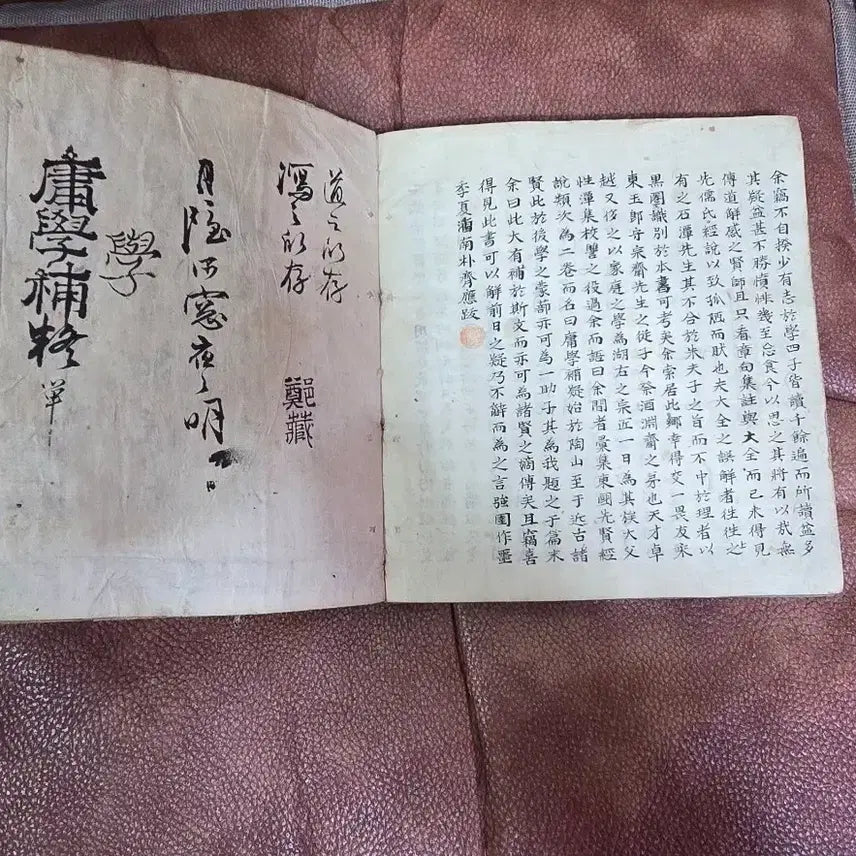 余竊不自揆少有志於學四子皆讀千餘遍而所讀益多
其疑益甚不勝憤悱幾至忘食今以思之其將有以哉無
傳道解惑之賢師且只看章句集註與大全而已未得見
先儒氏經說以致孤陋而貽也夫大全之誤解者徃徃之
有之石潭先生其不合於朱夫子之旨而不中於理者以
黑圈識別於本書可考矣余索居此鄉幸得交一畏友宋
東玉郎守宗齋先生之從子今癸酒淵齋之房也天才卓
越又侈之以家庭之學為湖右之宗近一日為其族大父
性潭集校讐之役過余而語曰余間者彙集東國先賢經
說類次為二卷而名曰庸學補疑始於陶山至于近古諸
賢此於後學之蒙蔀亦可為一助子其為我題之于篇末
余曰此大有補於斯文而亦可為諸賢之嫡傳矣且竊喜
得見此書可以解前日之疑乃不辭而為之言強圉作噩
季夏潘南朴齊應跋
道之所存
之所存
鄭藏
月隱
窓夜之明
學
庸學補
單